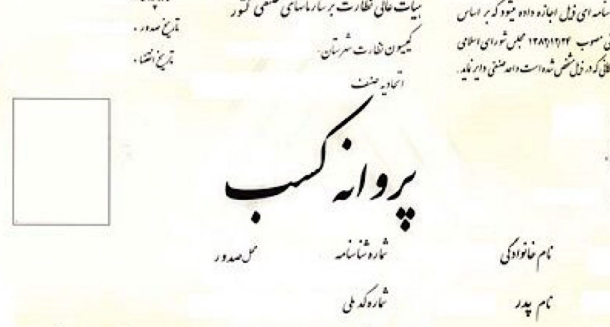 نامه ای ذیل اجازه داده میشود که بر اساس
مصوب ۱۳۸۲/۱۲/۲۴ مجلس شورای اسلامی
که در ذیل مشخص شده است واحد صنفی دایر نماید.
هیات عالی نظارت بر سازمانهای صنفی کشور
کمیسیون نظارت شهرستان
اتحادیه صنف
تاریخ صدور
تاریخ انقضاء
پروانه کسب
نام خانوادگی
شماره شناسنامه
محل صدور
نام پدر
شماره کد ملی